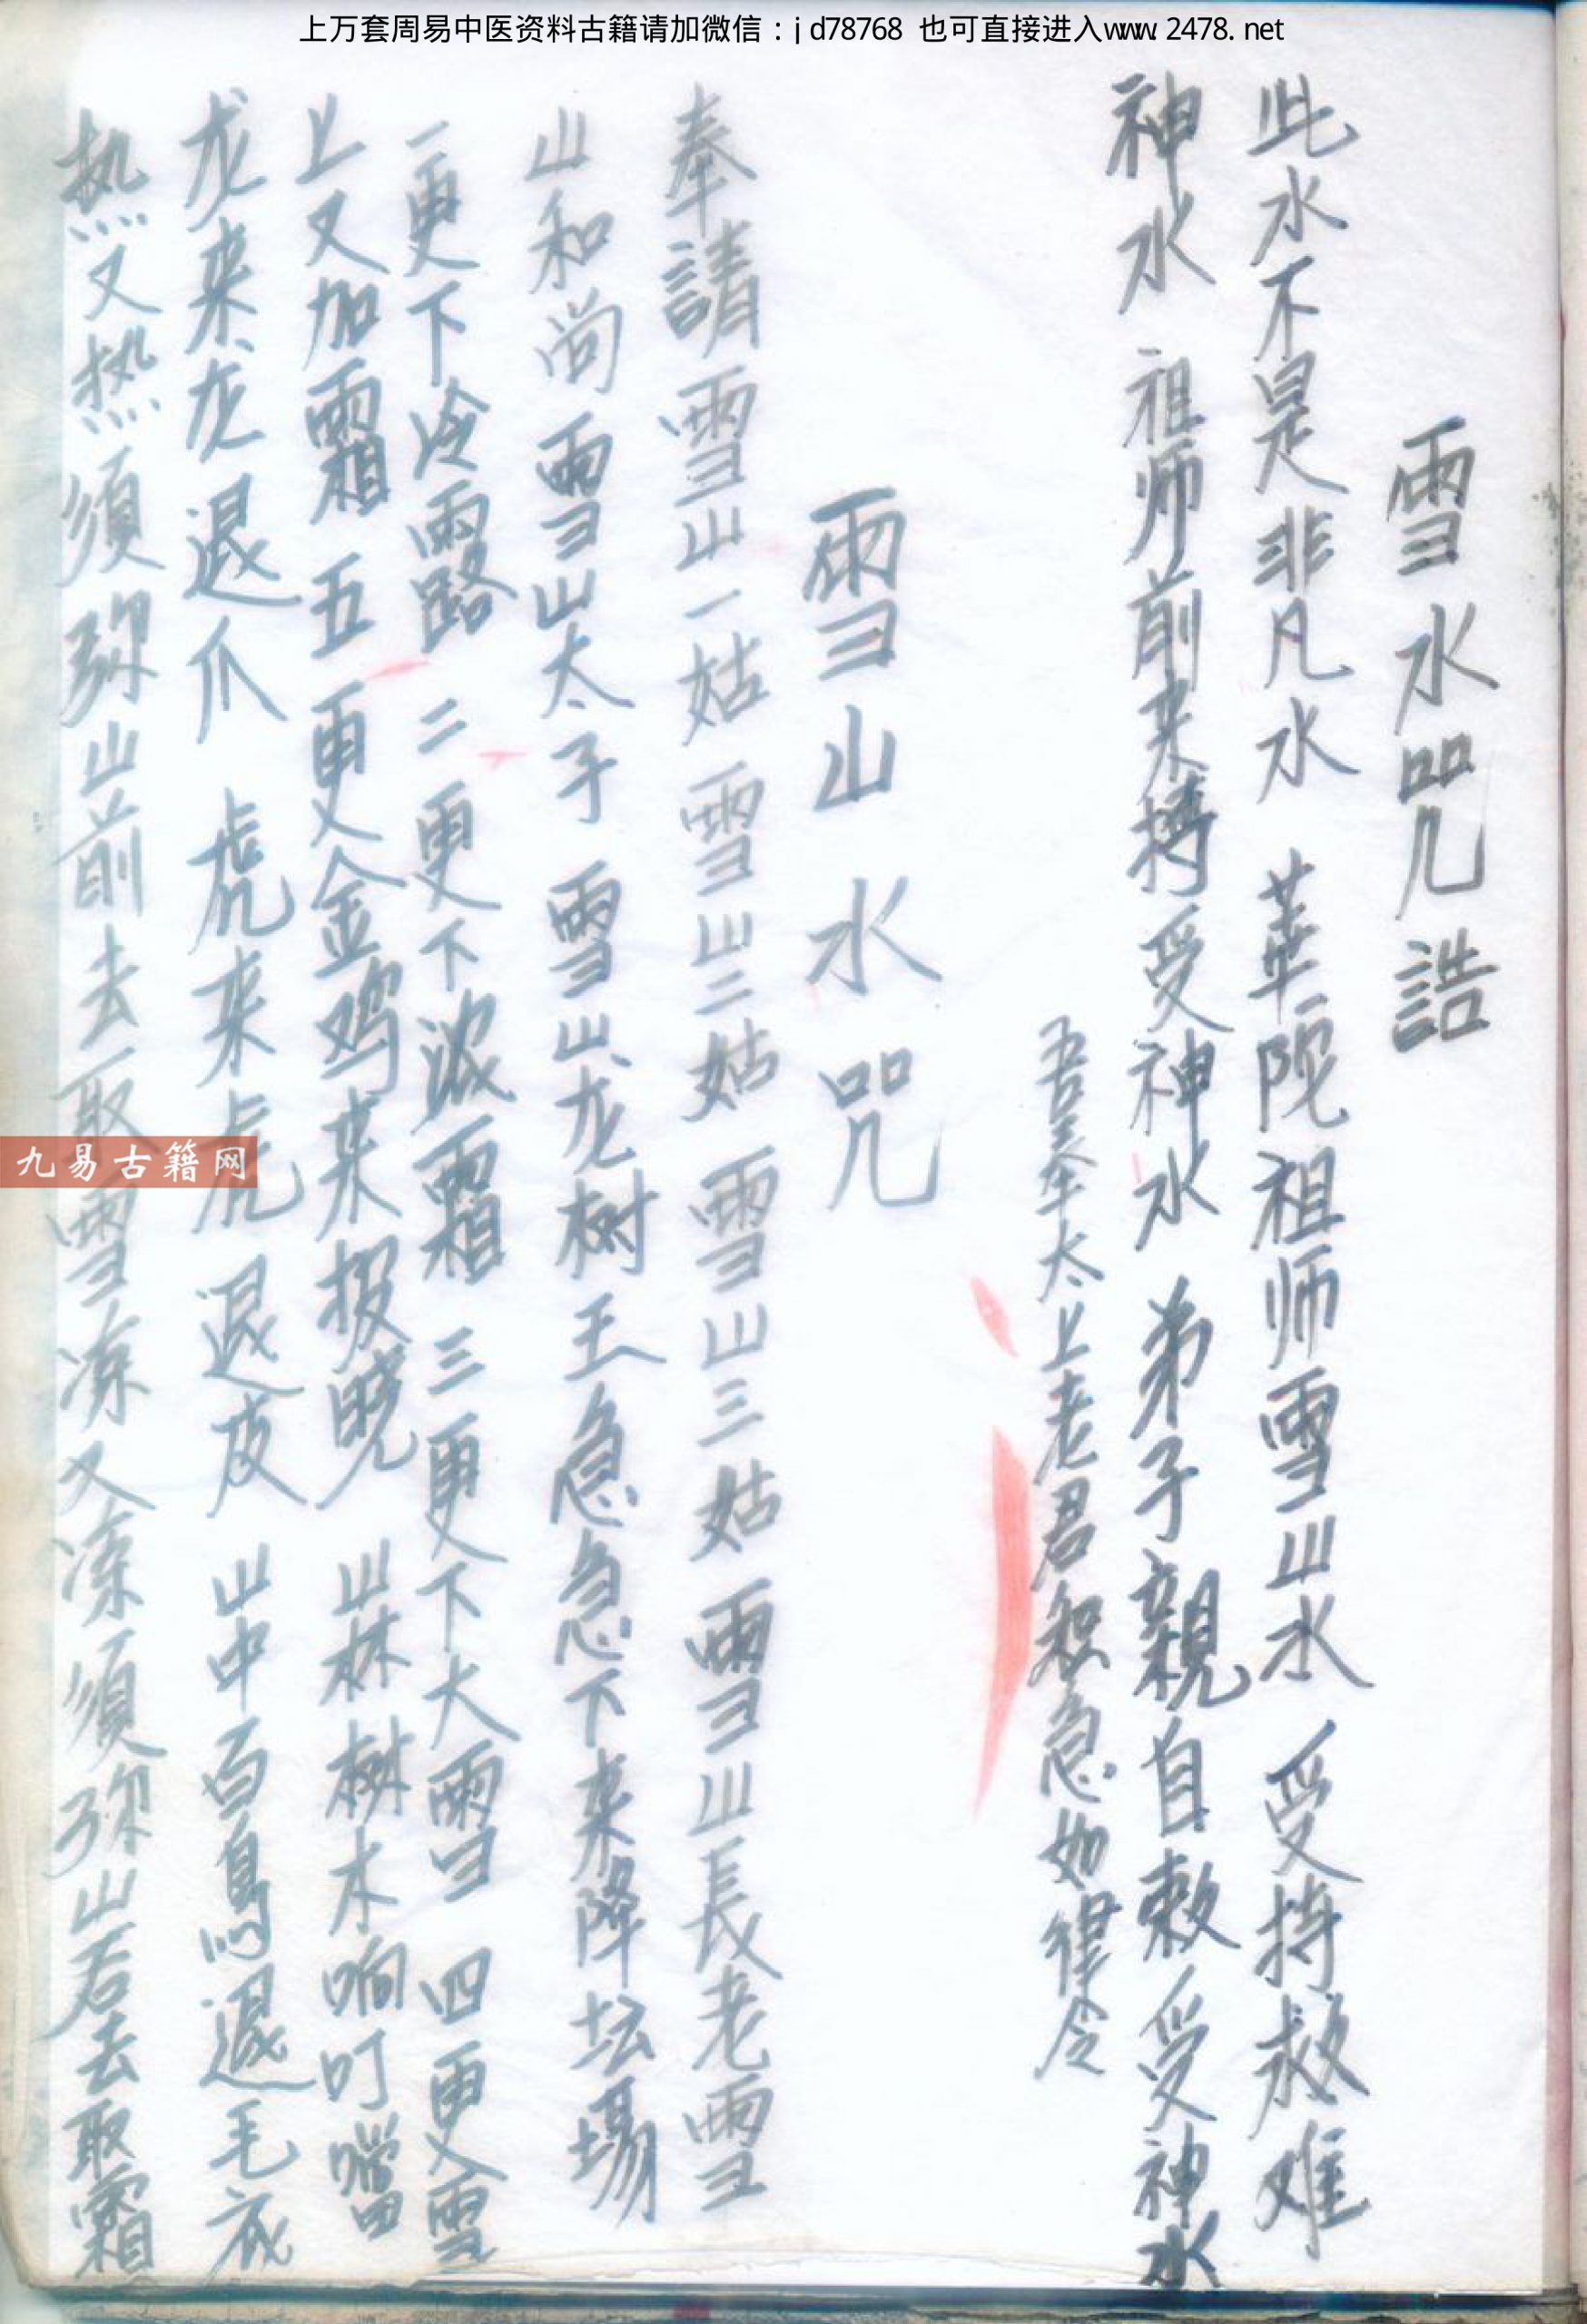 上万套周易中医资料古籍请加微信：jd78768 也可直接进入www.2478.net
雪水咒誥
此水不是非凡水 華陀祖师雪山水 受持救难
神水 祖师前来摶受神水 弟子親自敕受神水
吾奉太上老君 急如律令
雪山水咒
奉請雪山一姑 雪山二姑 雪山三姑 雪山長老 雪
山和尚 雪山太子 雪山龙树王 急急下来降坛場
一更下冷露 二更下浓霜 三更下大雪 四更雪
上又加霜 五更金鸡来报晓 山林樹木响叮噹
龙来龙退爪 虎来虎退皮 山中百鳥退毛衣
热又热 須弥山前去取雪 凍又凍 須弥山君去取霜
九易古籍网